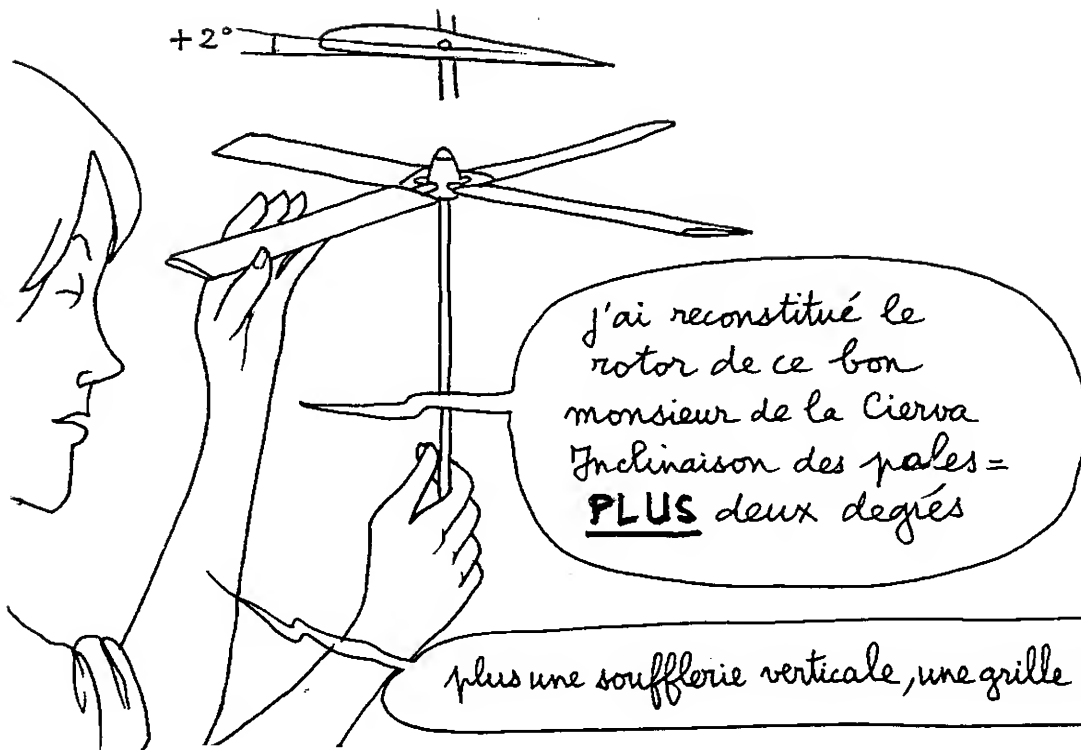 +2°
j'ai reconstitué le
rotor de ce bon
monsieur de la Cierva
Inclinaison des pales =
PLUS deux degrés
plus une soufflerie verticale, une grille